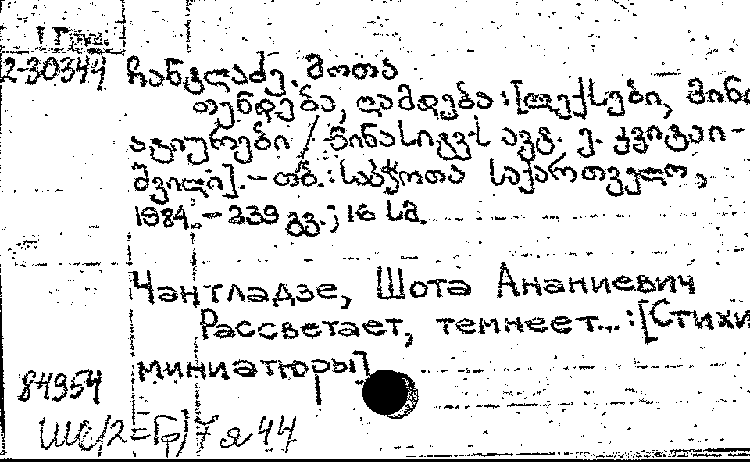 1 Груз.
2-30344 ჩანტლაძე. შოთა
თენდება, ღამდება : [ლექსები, მინი
ატიურები / წინასიტყვ. ავტ. ე. კვიტაი-
შვილი]. – თბ. : საბჭოთა საქართველო,
1984. – 239 გვ. ; 16 სმ.
Чантладзе, Шота Ананиевич
Рассветает, темнеет... : [Стихи
миниатюры]
84954
Ш5/2=Гр) 7 я 44